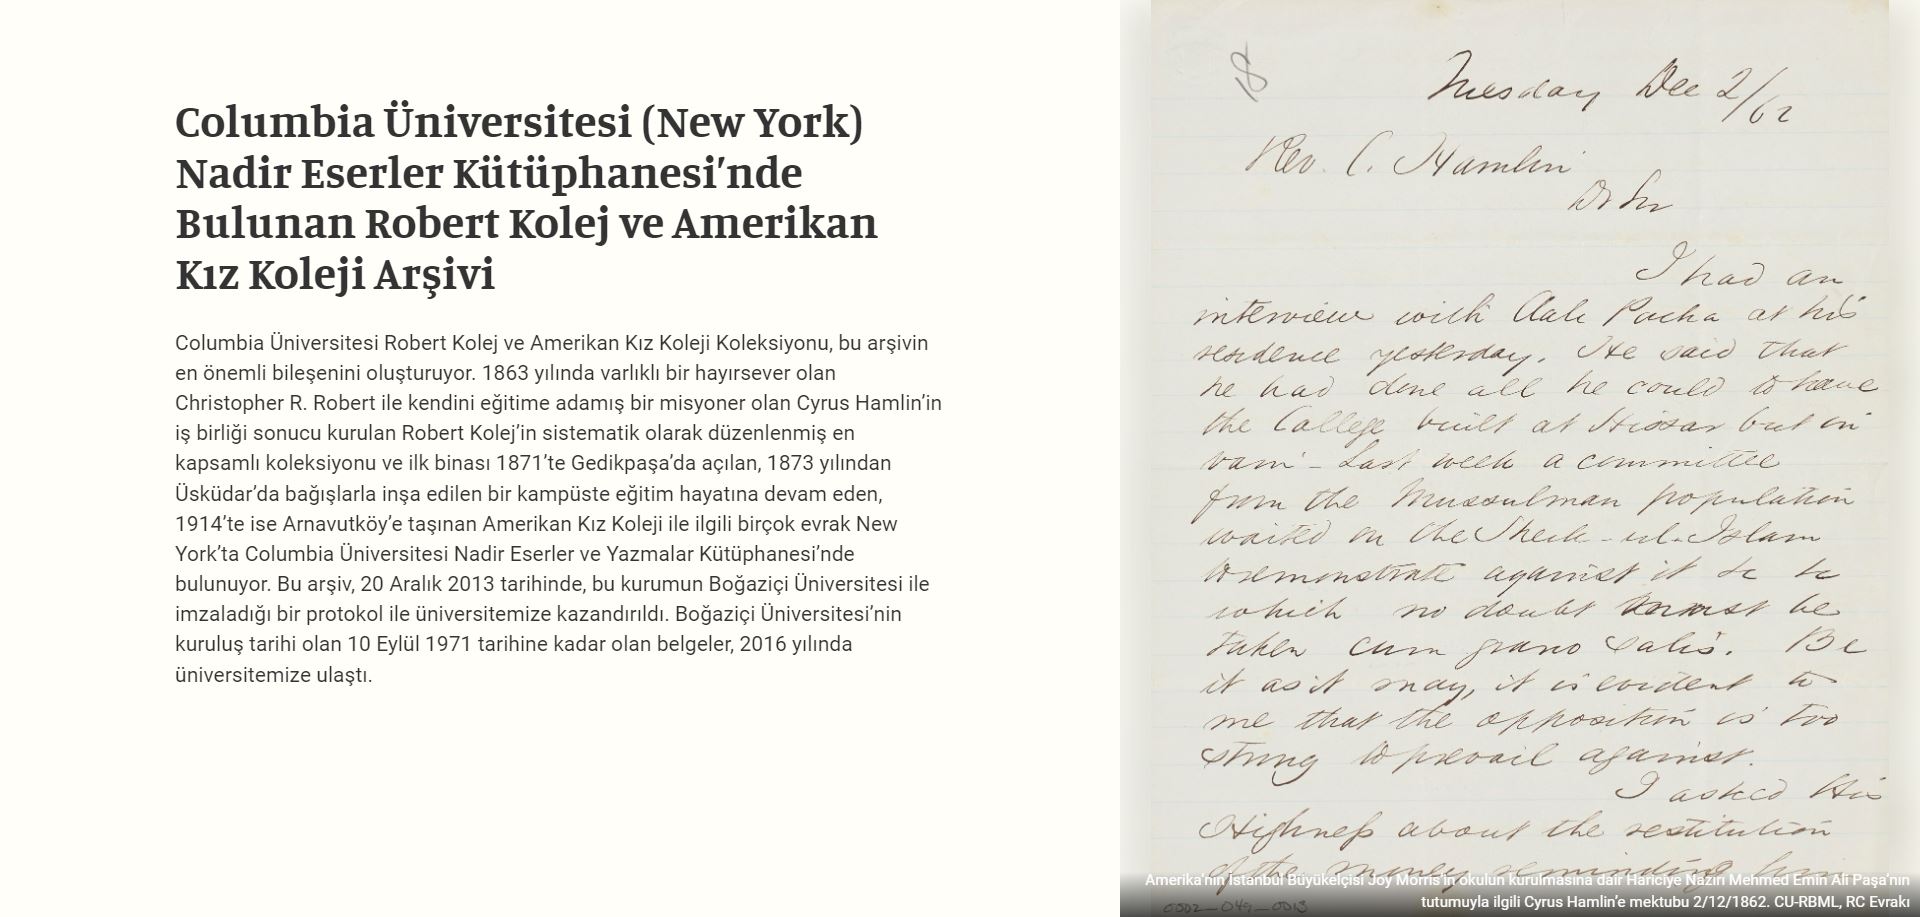 Columbia Üniversitesi (New York)
Nadir Eserler Kütüphanesi’nde
Bulunan Robert Kolej ve Amerikan
Kız Koleji Arşivi
Columbia Üniversitesi Robert Kolej ve Amerikan Kız Koleji Koleksiyonu, bu arşivin
en önemli bileşenini oluşturuyor. 1863 yılında varlıklı bir hayırsever olan
Christopher R. Robert ile kendini eğitime adamış bir misyoner olan Cyrus Hamlin’in
iş birliği sonucu kurulan Robert Kolej’in sistematik olarak düzenlenmiş en
kapsamlı koleksiyonu ve ilk binası 1871’te Gedikpaşa’da açılan, 1873 yılından
Üsküdar’da bağışlarla inşa edilen bir kampüste eğitim hayatına devam eden,
1914’te ise Arnavutköy’e taşınan Amerikan Kız Koleji ile ilgili birçok evrak New
York’ta Columbia Üniversitesi Nadir Eserler ve Yazmalar Kütüphanesi’nde
bulunuyor. Bu arşiv, 20 Aralık 2013 tarihinde, bu kurumun Boğaziçi Üniversitesi ile
imzaladığı bir protokol ile üniversitemize kazandırıldı. Boğaziçi Üniversitesi’nin
kuruluş tarihi olan 10 Eylül 1971 tarihine kadar olan belgeler, 2016 yılında
üniversitemize ulaştı.
18
Tuesday Dec 2/62
Rev. C. Hamlin
Dr Sir
I had an
interview with Aali Pacha at his
residence yesterday. He said that
he had done all he could to have
the College built at Hissar but in
vain - Last week a committee
from the Mussulman population
waited on the Sheik-ul-Islam
to remonstrate against it &c &c
which no doubt must be
taken cum grano salis. Be
it as it may, it is evident to
me that the opposition is too
strong to prevail against.
I asked His
Highness about the restitution
of the money reminding him
Amerika'nın İstanbul Büyükelçisi Joy Morris'in okulun kurulmasına dair Hariciye Nazırı Mehmed Emin Ali Paşa'nın
tutumuyla ilgili Cyrus Hamlin'e mektubu 2/12/1862. CU-RBML, RC Evrakı
0002_049_0013